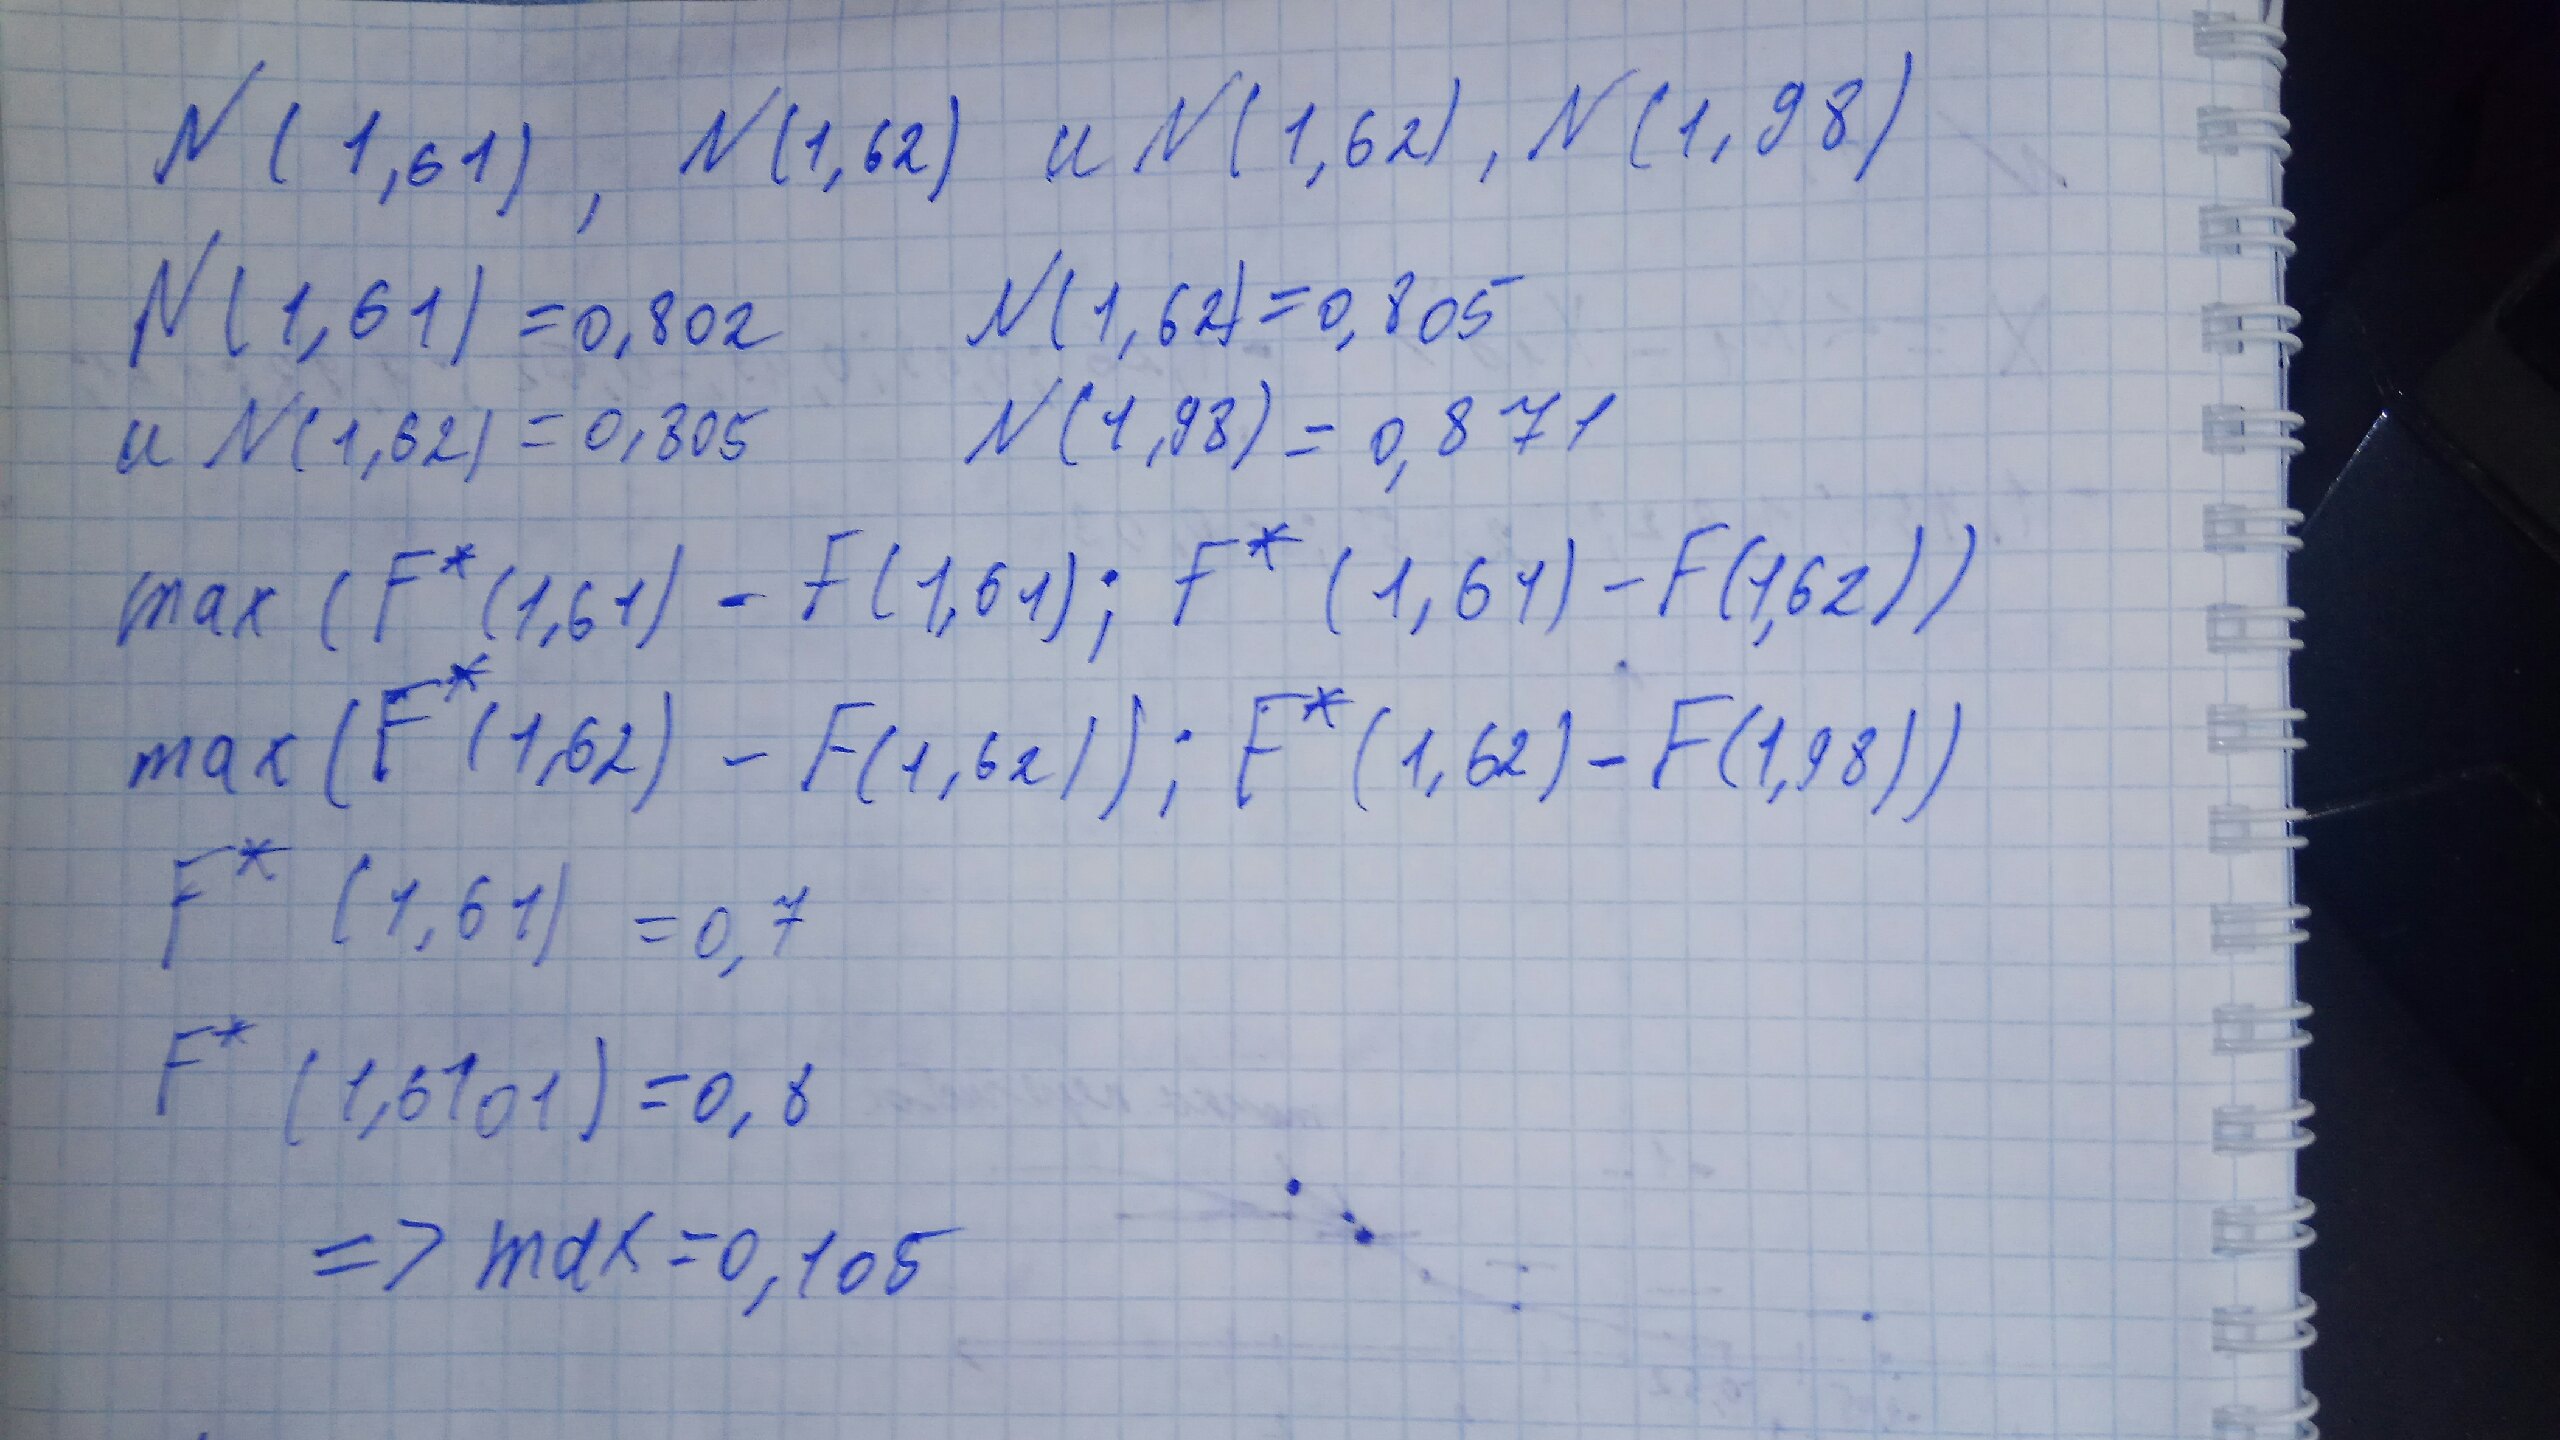 N(1,61), N(1,62) и N(1,62), N(1,98)
N(1,61) =0,802 N(1,62)=0,805
и N(1,62) = 0,805 N(1,98) = 0,871
max (F*(1,61) - F(1,61); F* (1,61) - F(1,62))
max (F*(1,62) - F(1,62)); F*(1,62) - F(1,98))
F* (1,61) =0,7
F* (1,6101) =0,8
=> max =0,105